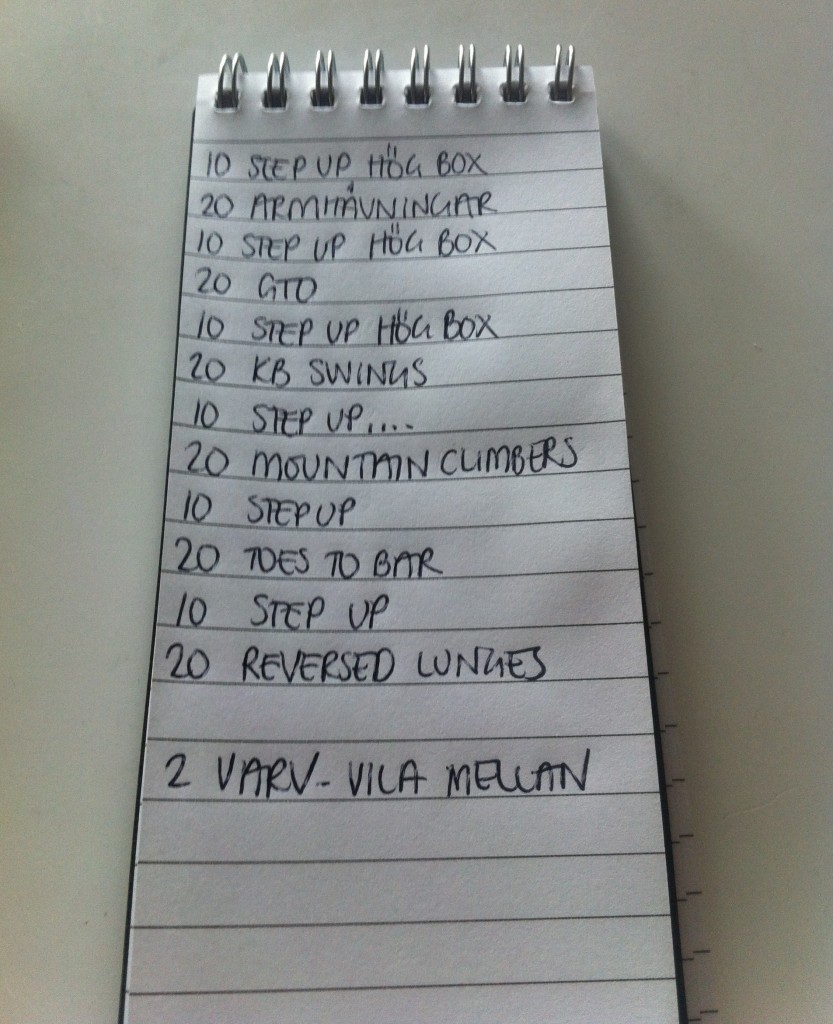 10 STEP UP HÖG BOX
20 ARMHÄVNINGAR
10 STEP UP HÖG BOX
20 GTO
10 STEP UP HÖG BOX
20 KB SWINGS
10 STEP UP....
20 MOUNTAIN CLIMBERS
10 STEP UP
20 TOES TO BAR
10 STEP UP
20 REVERSED LUNGES
2 VARV - VILA MELLAN